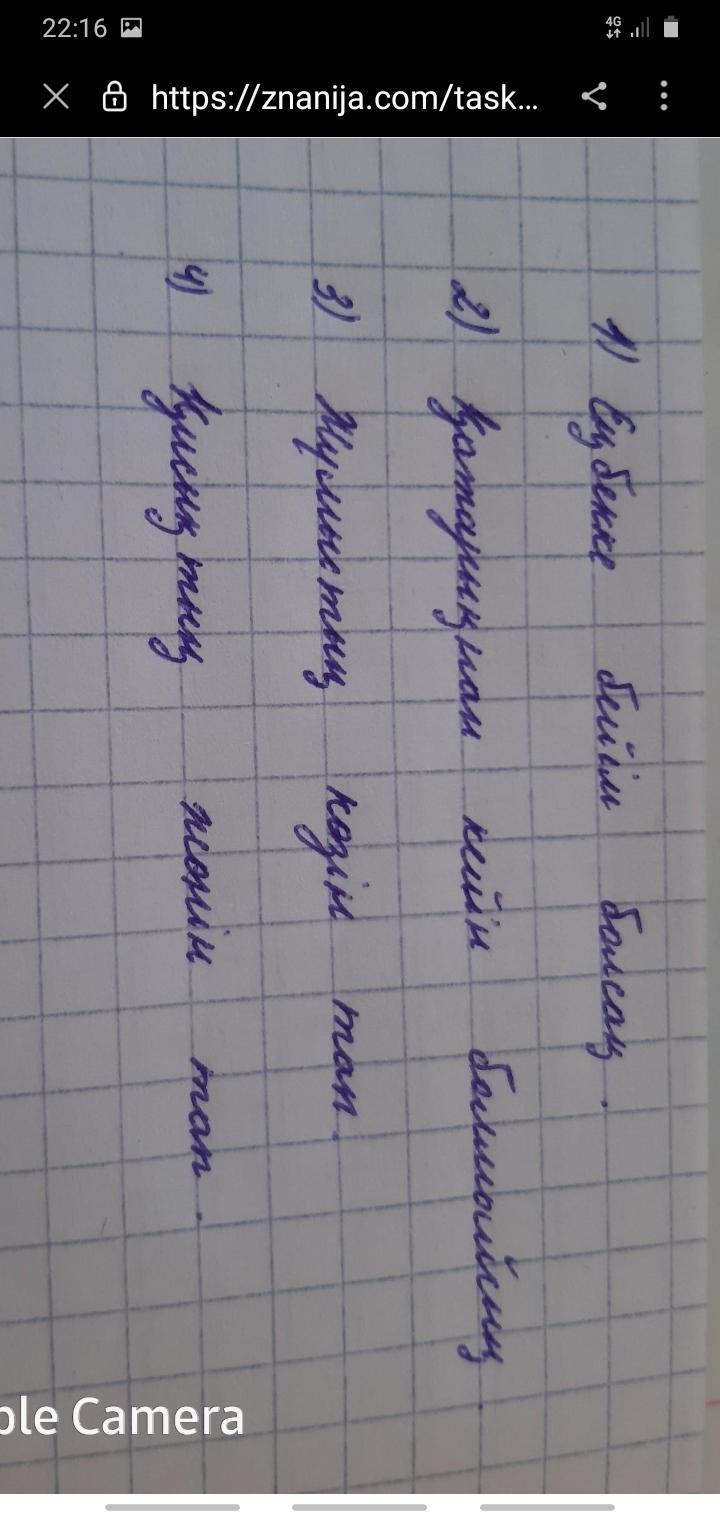 22:16
4G
https://znanija.com/task...
1) Еңбекке бейім болсаң.
2) Қатарыңнан кейін болмайсың.
3) Жұмыстың көзін тап.
4) Қиысықтың жөнін тап.
ple Camera